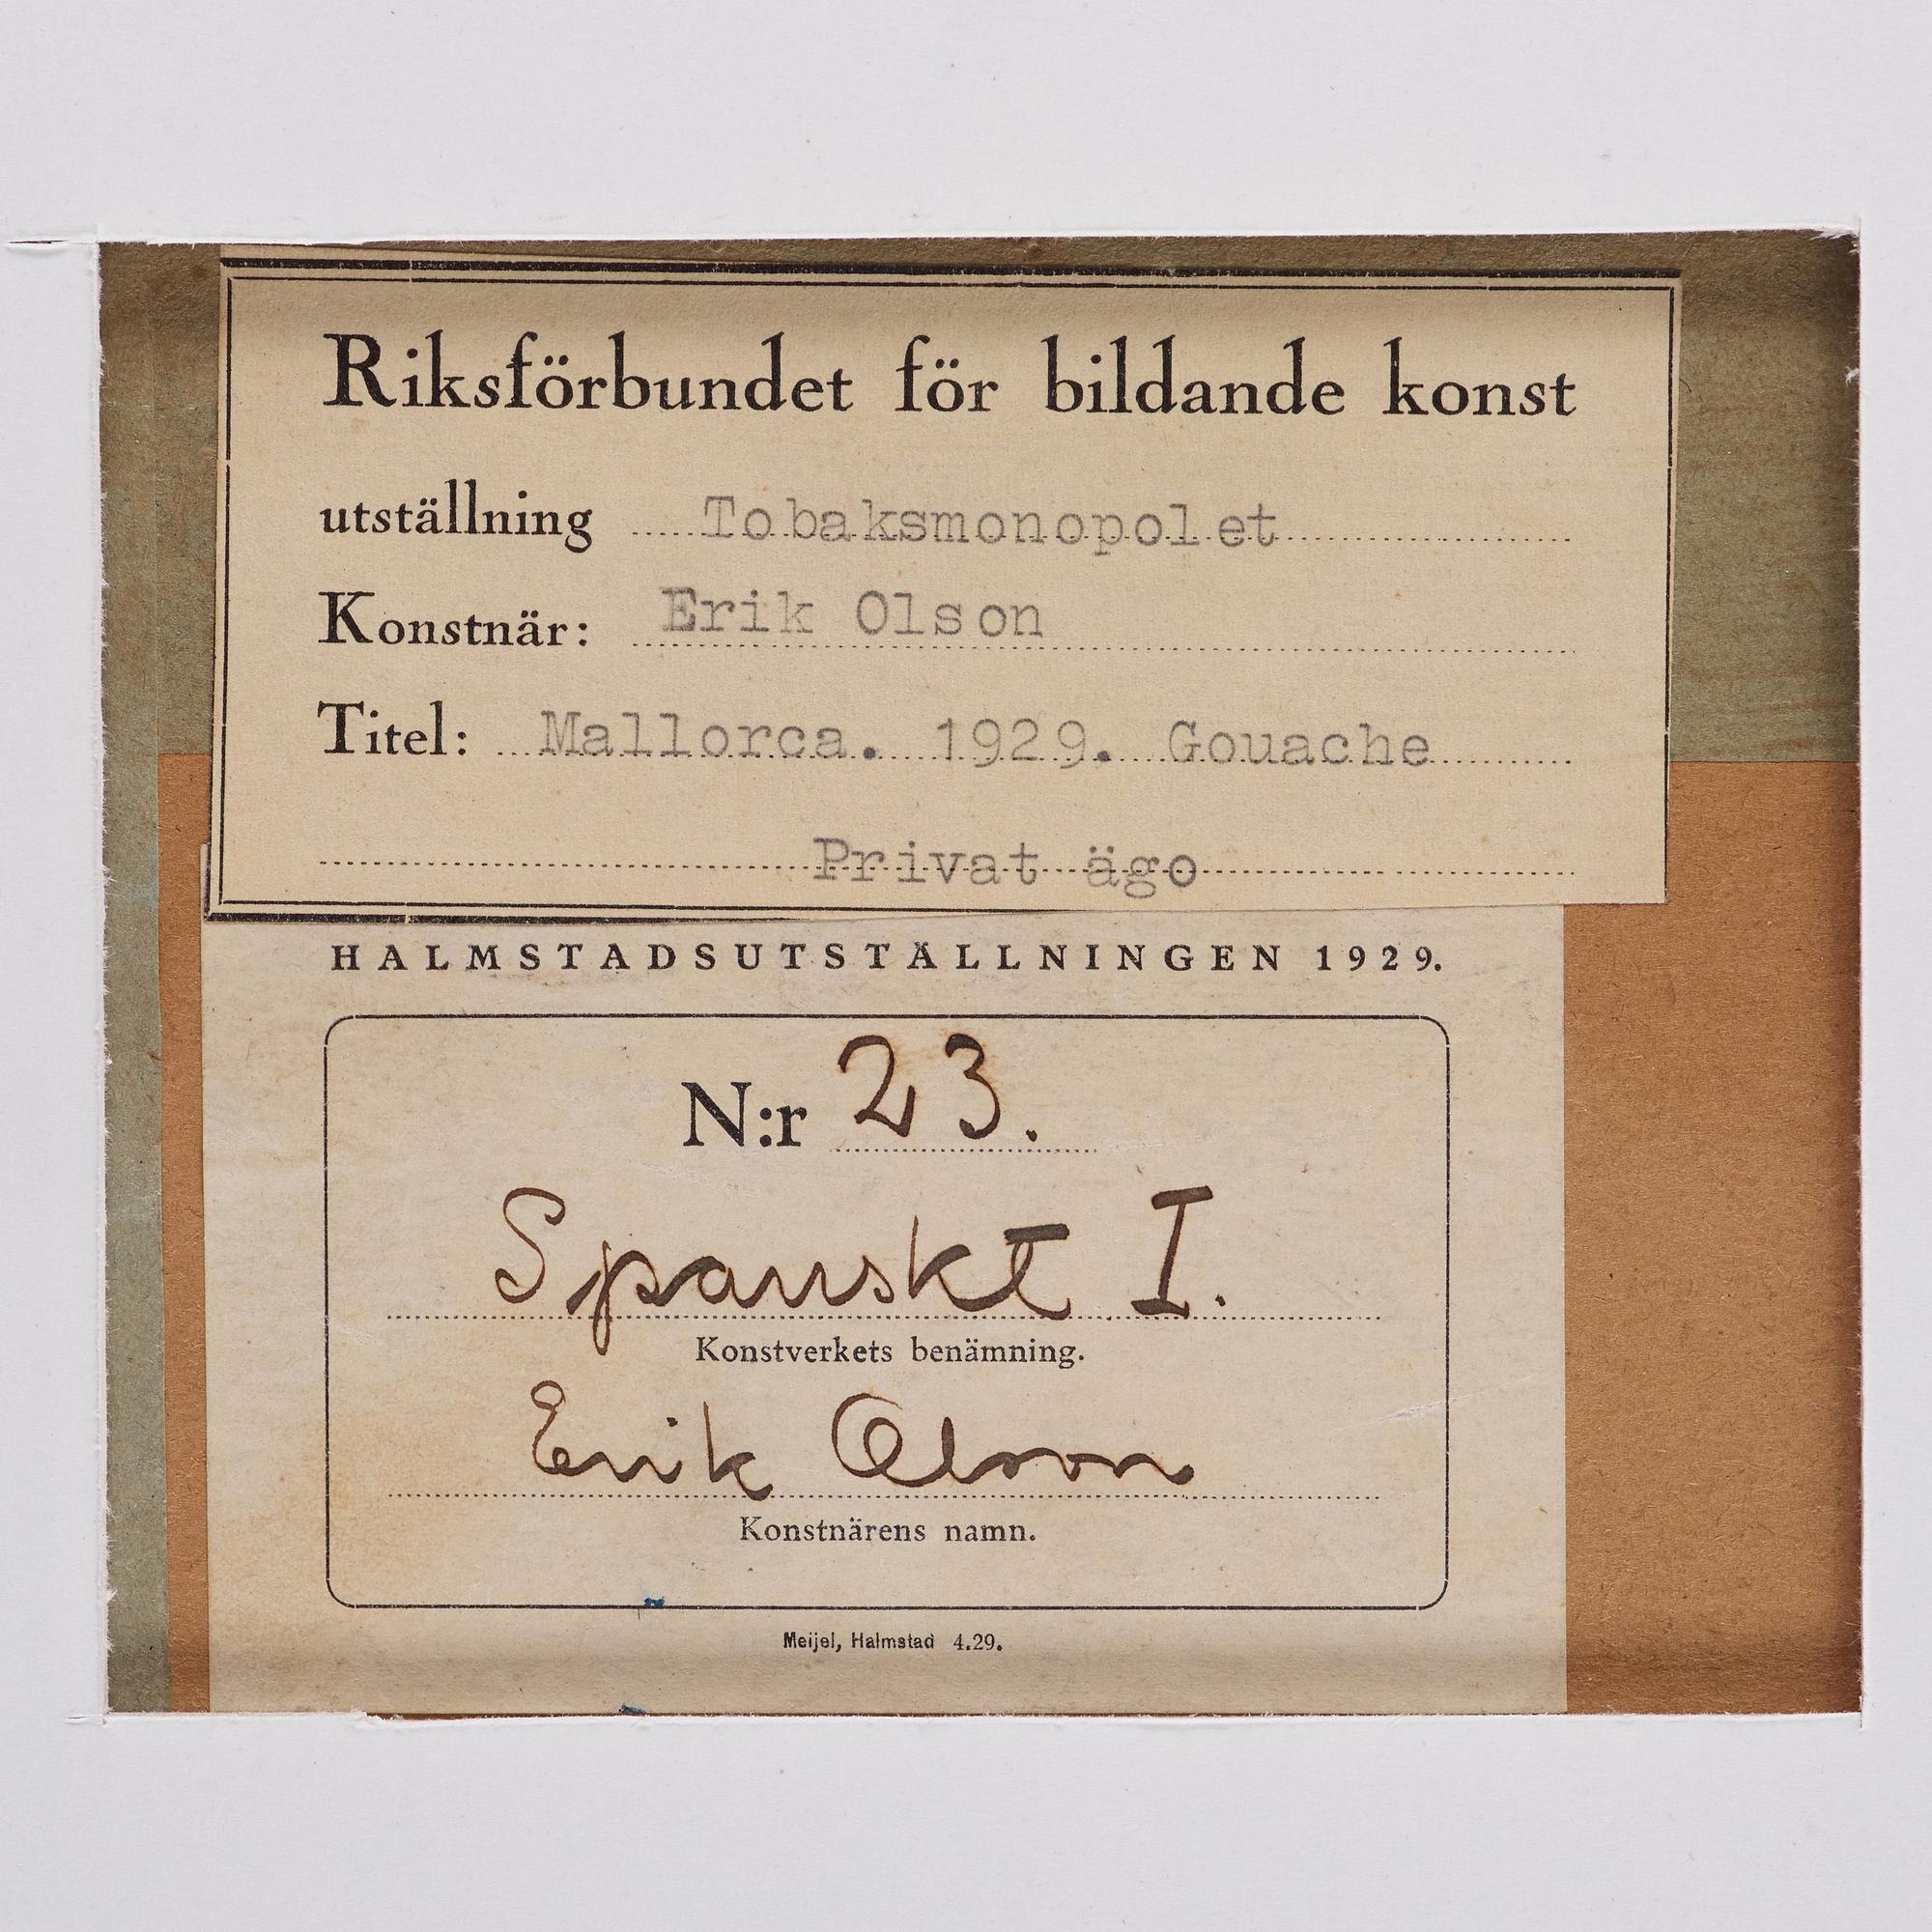 Riksförbundet för bildande konst
utställning Tobaksmonopolet
Konstnär: Erik Olson
Titel: Mallorca. 1929. Gouache
Privat ägo
HALMSTADSUTSTÄLLNINGEN 1929.
N:r 23.
Spanskt I.
Konstverkets benämning.
Erik Olson
Konstnärens namn.
Meijel, Halmstad 4.29.